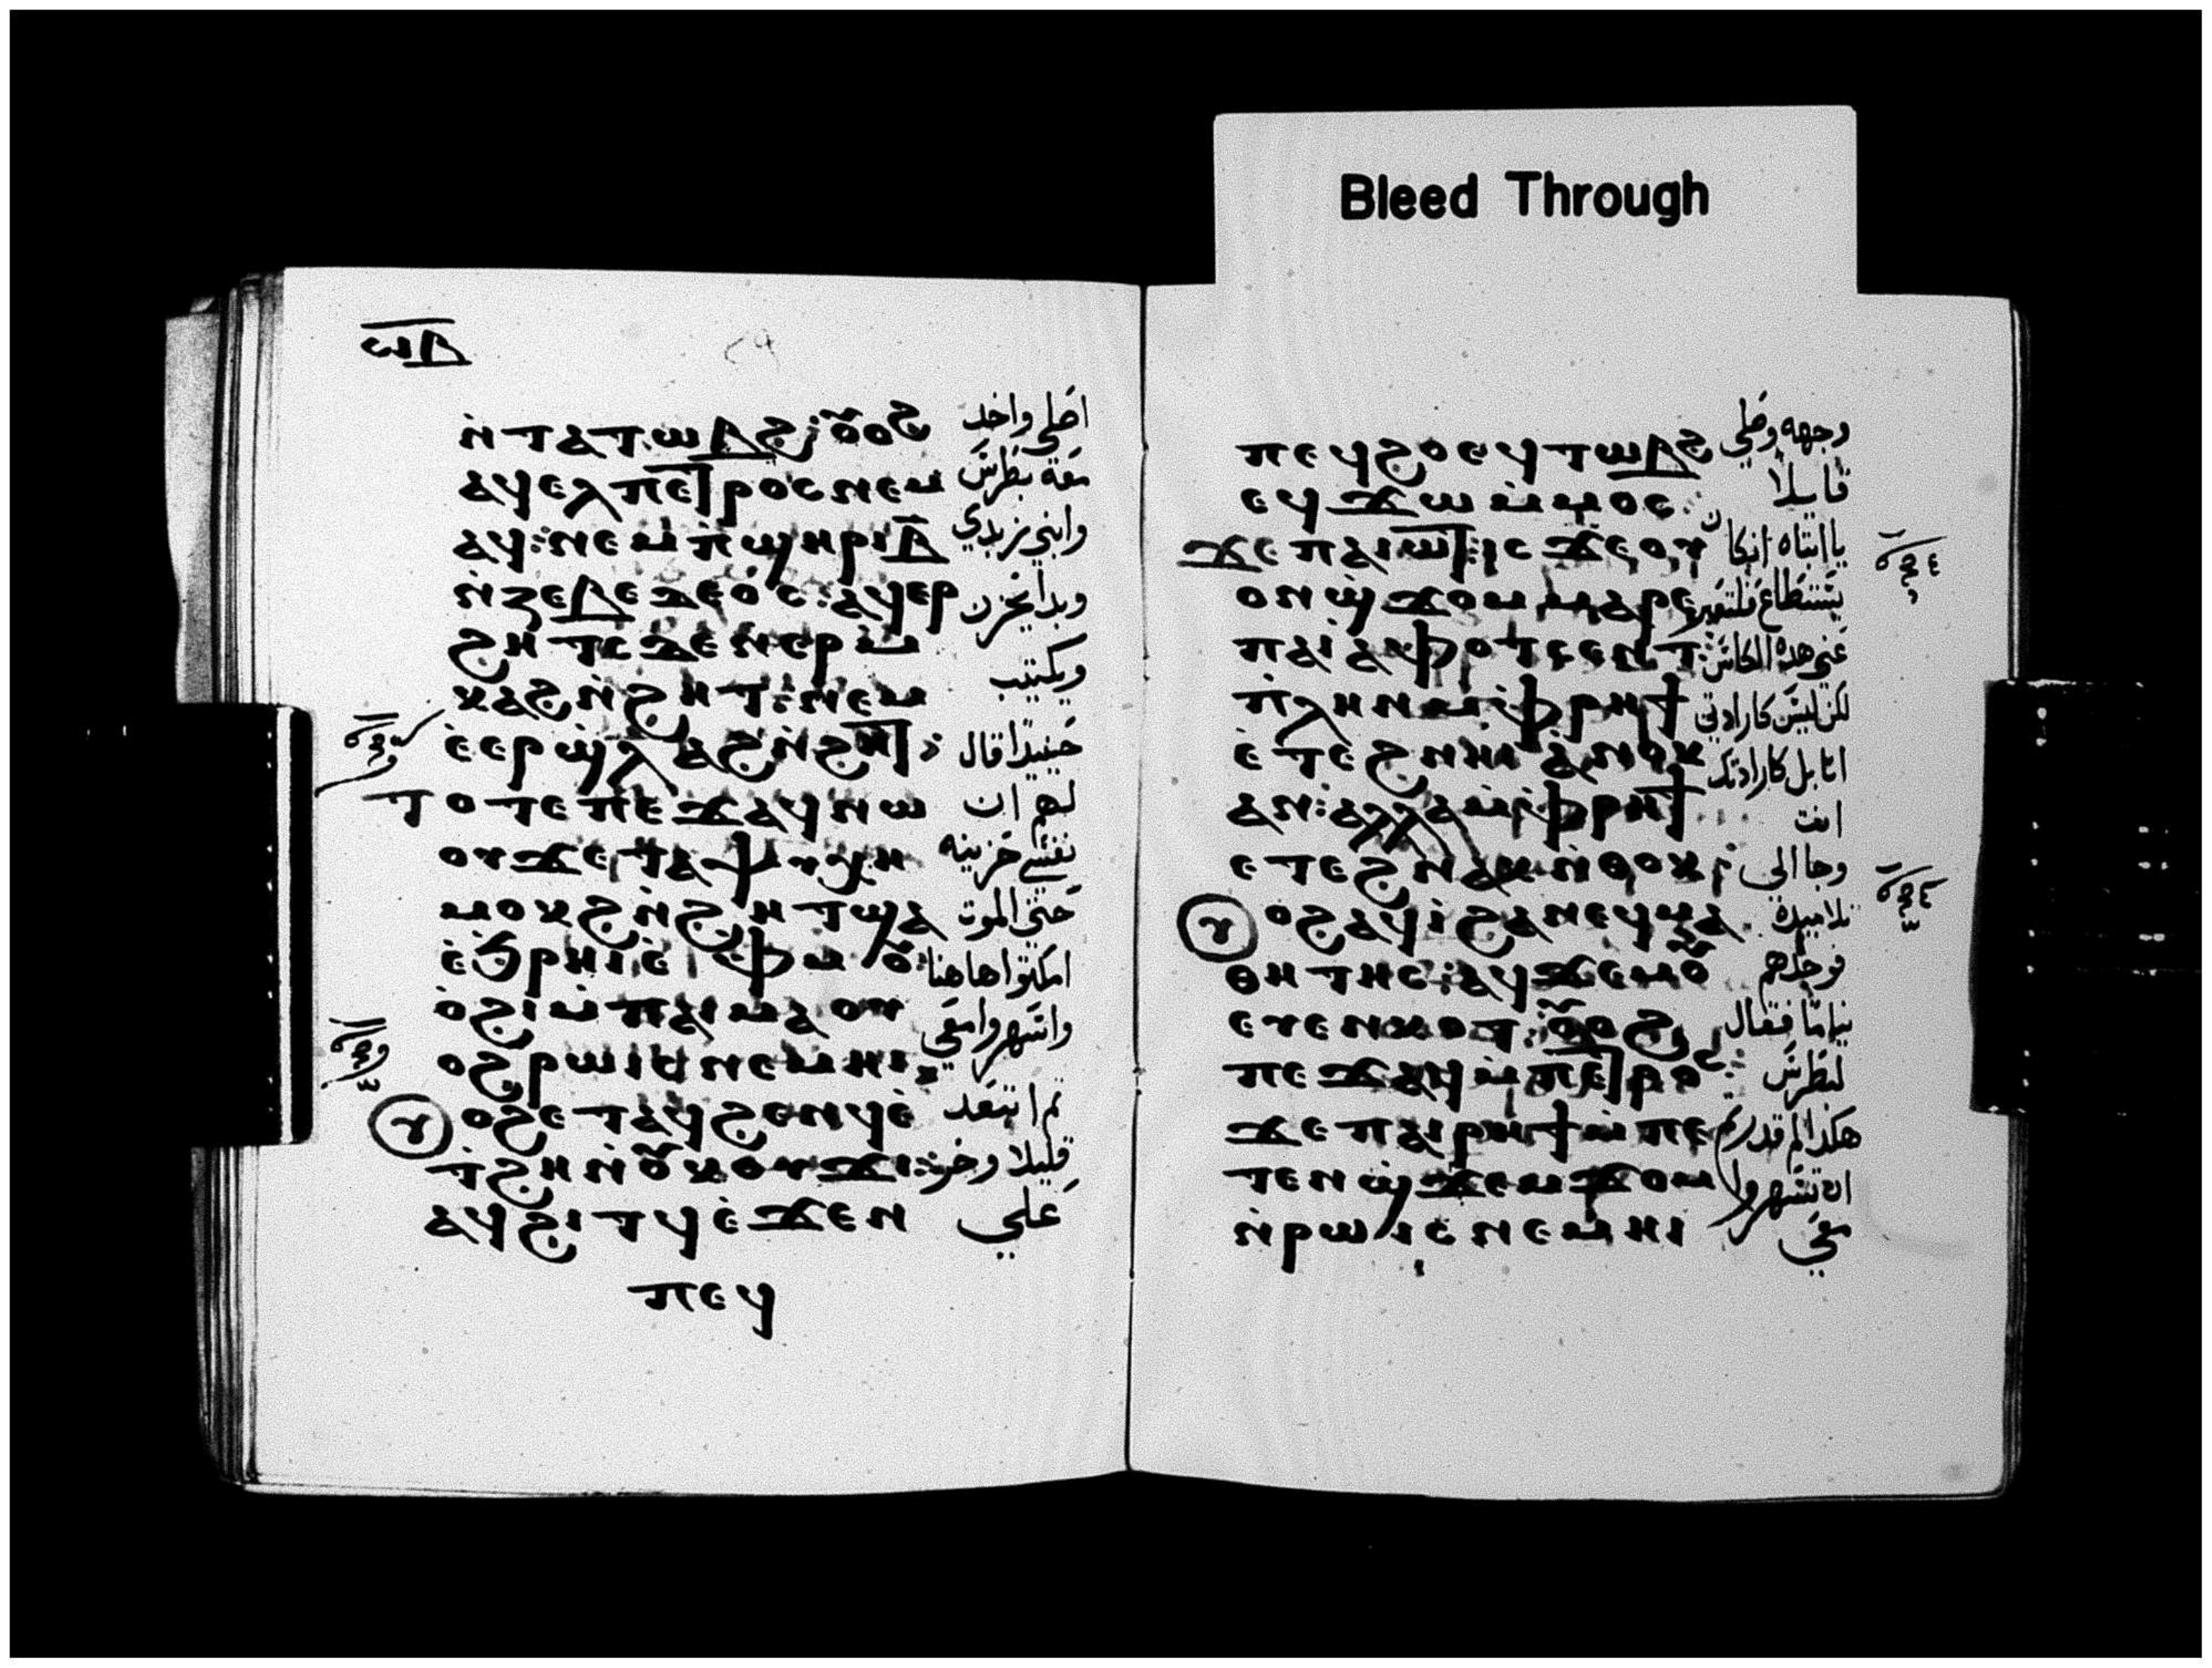 Bleed Through
ⲱⲗ
ⲛ̀ⲧⲁⲧⲱⲃϩ ⲟⲩⲟϩ اصلي واخد
ⲁϥⲉⲗ ⲡⲉⲧⲣⲟⲥ ⲛⲉⲙ معه بطرس
ⲁϥ: ⲛⲉⲙ ⲡ̀ϣⲏⲣⲓ ⲃ̅ وابني زبدي
ⲛ̀ⲍⲉⲃⲉⲇⲉⲟⲥ: ⲁϥⲉⲣ وبدا يحزن
ϩⲏⲧⲥ ⲇⲉ ⲛ̀ⲉⲣⲙ̀ ويكتيب
ⲕⲁϩ ⲛ̀ϩⲏⲧ: ⲛⲉⲙ
ⲉ̀ⲉⲣϣ̀ⲗⲁϩ ⲛ̀ϩⲏⲧ: حينيدا قال
ⲧⲟⲧⲉ ⲡⲉϫⲁϥ ⲛⲱ لهم ان
ⲟⲩ ϫⲉ ⲧⲁⲯⲩⲭⲏ نفسي حزينه
ⲙⲟⲕϩ ⲛ̀ϩⲏⲧ ϣⲁ حتى الموت
ⲉ̀ϧⲣⲏⲓ ⲉ̀ⲫⲙⲟⲩ: امكتوا هاهنا
ⲟ̀ϩⲓ ⲙ̀ⲡⲁⲓⲙⲁ ⲟⲩ واسهروا معي
ⲟϩ ⲣⲱⲓⲥ ⲛⲉⲙⲏⲓ:
ⲟϩ ⲉⲧⲁϥϩⲉⲛϥ ⲉ̀ ثم ابتعد
ⲧ̀ϩⲏ ⲛ̀ⲟⲩⲕⲟⲩϫⲓ: قليلا وخر
ⲁϥϩⲓⲧϥ ⲉ̀ϫⲉⲛ علي
ⲡⲉϥ
ⲡⲉϥϩⲟ ⲉϥⲧⲱⲃϩ وجهه وصلي
ⲉϥϫⲱ ⲙ̀ⲙⲟⲥ: قايلا
ϫⲉ ⲡⲁⲓⲱⲧ: ⲓⲥϫⲉ ⲟⲩ يا ابتاه ان كان
ⲟⲛ ϣ̀ϫⲟⲙ ⲙⲁⲣⲉ يستطاع فلتعبر
ⲡⲁⲓⲁⲫⲟⲧ ⲥⲉⲛⲧ: عني هده الكاس
ⲡ̀ⲗⲏⲛ ⲙ̀ⲫⲣⲏϯ لكن ليس كارادتي
ⲉ̀ⲧⲉϩⲛⲏⲓ ⲁ̀ⲛⲟⲕ انا بل كارادتك
ⲁⲛ: ⲁⲗⲗⲁ ⲙ̀ⲫⲣⲏϯ انت
ⲉⲧⲉϩⲛⲁⲕ ⲛ̀ⲑⲟⲕ: وجا الي
ⲟϩ ⲁϥⲓ̀ ϩⲁ ⲛⲉϥⲙⲁ تلاميده
ⲑⲏⲧⲏⲥ: ⲁϥϫⲉⲙⲟⲩ فوجدهم
ⲉⲩⲉⲛⲕⲟⲧ: ⲟⲩⲟϩ نياما فقال
ⲡⲉϫⲁϥ ⲙ̀ⲡⲉⲧⲣⲟⲥ: لبطرس
ϫⲉ ⲡⲁⲓⲣⲏϯ ⲙ̀ⲡⲉ هكدا لم قدرتم
ⲧⲉⲛϣ̀ϫⲉⲙϫⲟⲙ ان تسهروا
ⲛ̀ⲣⲱⲓⲥ ⲛⲉⲙⲏⲓ معي